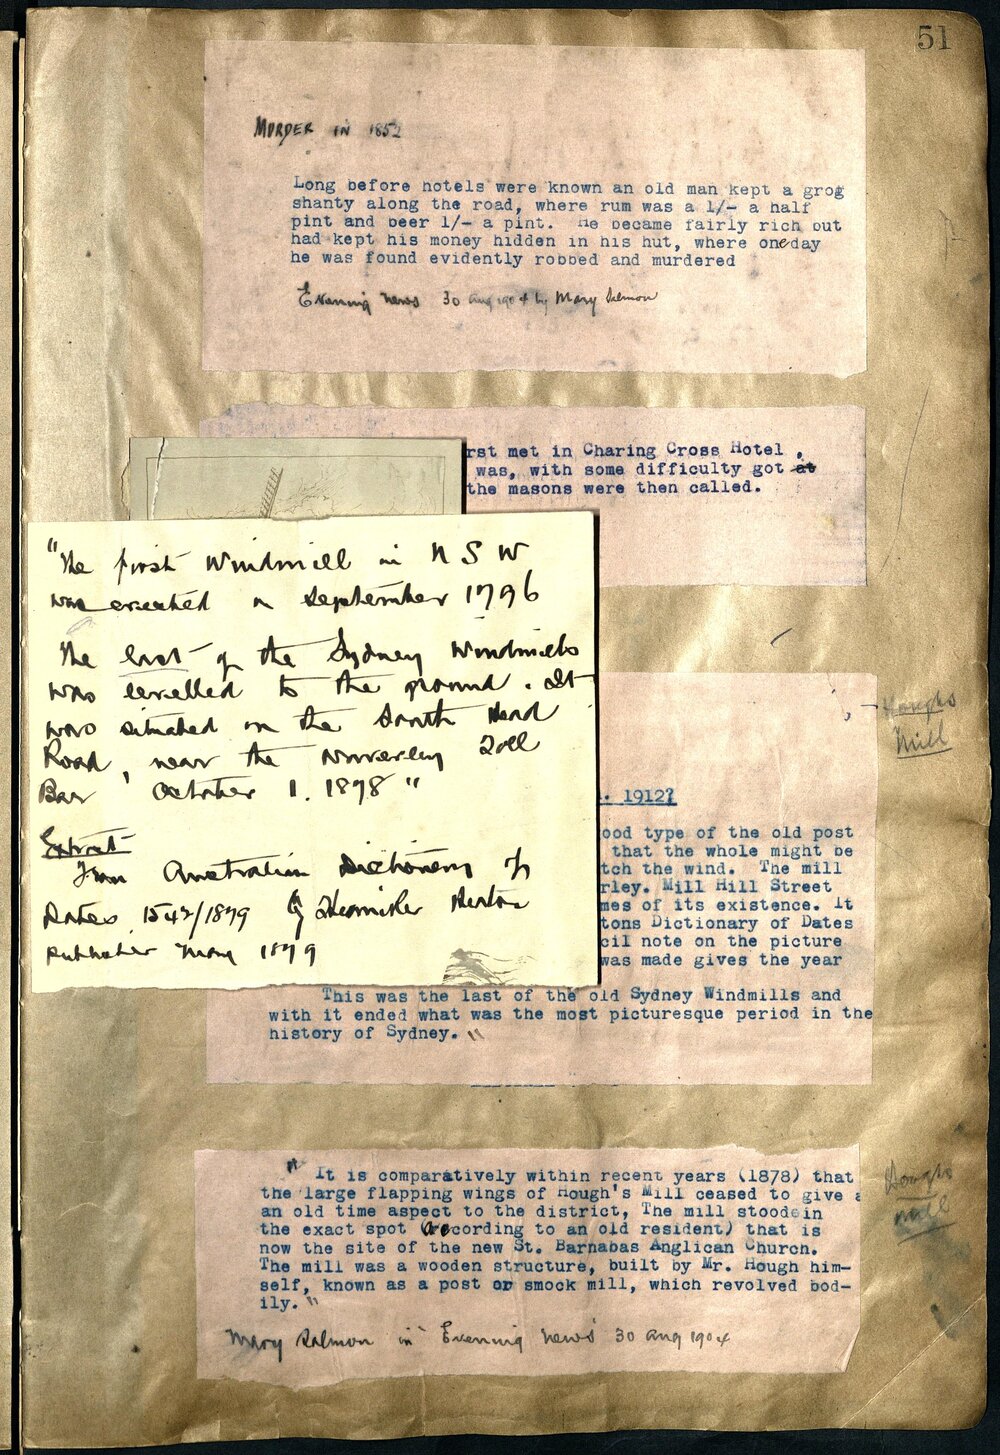 51
MURDER IN 1852
Long before hotels were known an old man kept a grog
shanty along the road, where rum was a 1/- a half
pint and beer 1/- a pint. He became fairly rich but
had kept his money hidden in his hut, where oneday
he was found evidently robbed and murdered
Evening News 30 Aug 1904 by Mary Salmon
rst met in Charing Cross Hotel ,
was, with some difficulty got at
the masons were then called.
"The first Windmill in N S W
was erected in September 1796
The last of the Sydney Windmills
was levelled to the ground. It
was situated on the South Head
Road, near the Waverley Toll
Bar October 1. 1878"
Extract
From Australian Dictionary of
Dates 1542/1879 by Heaton
published May 1879
Houghs
Mill
. 1912?
ood type of the old post
that the whole might be
tch the wind. The mill
rley. Mill Hill Street
mes of its existence. It
tons Dictionary of Dates
cil note on the picture
was made gives the year
This was the last of the old Sydney Windmills and
with it ended what was the most picturesque period in the
history of Sydney."
" It is comparatively within recent years (1878) that
the large flapping wings of Hough's Mill ceased to give a
an old time aspect to the district, The mill stoodein
the exact spot (according to an old resident) that is
now the site of the new St. Barnabas Anglican Church.
The mill was a wooden structure, built by Mr. Hough him-
self, known as a post or smock mill, which revolved bod-
ily."
Houghs
Mill
Mary Salmon in "Evening News" 30 Aug 1904